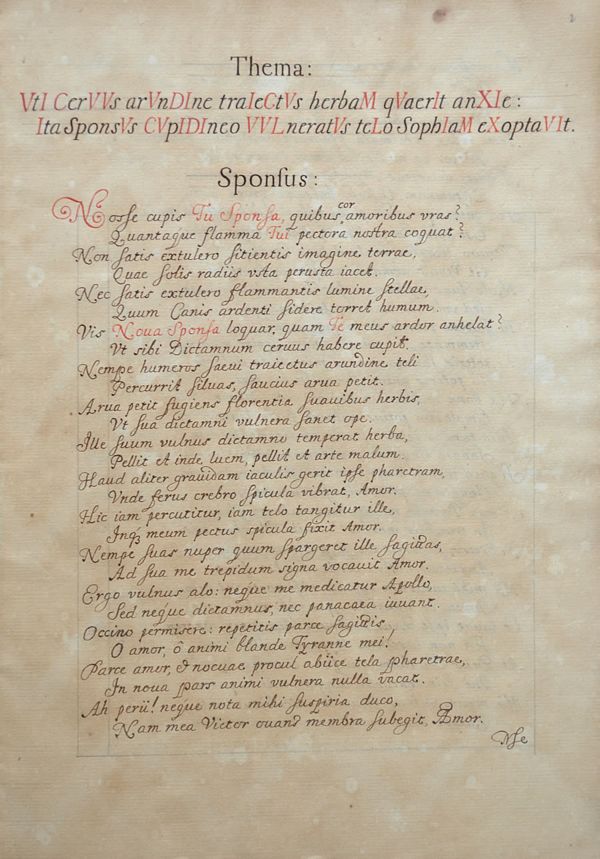 2
Thema:
VtI CerVVs arVnDIne traIeCtVs herbaM qVaerIt anXIe:
Ita SponsVs CVpIDIneo VVLneratVs teLo SophIaM eXoptaVIt.
Sponſus:
Noſſe cupis Tu Sponſa, quibus, cor amoribus vras?
Quantaque flamma Tui pectora noſtra coquat?
Non ſatis extulero ſitientis imagine terrae,
Quae ſolis radiis vſta peruſta iacet.
Nec ſatis extulero flammantis lumine ſtellae,
Quum Canis ardenti ſidere torret humum.
Vis Noua Sponſa loquar, quam Te meus ardor anhelat?
Vt ſibi Dictamnum ceruus habere cupit.
Nempe humeros ſaeui traiectus arundine teli
Percurrit ſiluas, ſaucius arua petit.
Arua petit fugiens florentia ſuauibus herbis,
Vt ſua dictamni vulnera ſanet ope.
Ille ſuum vulnus dictamno temperat herba,
Pellit et inde luem, pellit et arte malum.
Haud aliter grauidam iaculis gerit ipſe pharetram,
Vnde ferus crebro ſpicula vibrat, Amor.
Hic iam percutitur, iam telo tangitur ille,
Inq; meum pectus ſpicula fixit Amor.
Nempe ſuas nuper quum ſpargeret ille ſagittas,
Ad ſua me trepidum ſigna vocauit Amor.
Ergo vulnus alo: neque me medicatur Apollo,
Sed neque dictamnus, nec panacaea iuuant.
Occino permiſere: repetitis parce ſagittis
O amor, ô animi blande Tyranne mei!
Parce amor, & nocuae procul abiice tela pharetrae,
In noua pars animi vulnera nulla vacat.
Ah perii! neque nota mihi ſuſpiria duco,
Nam mea Victor ouans membra ſubegit Amor.
Me